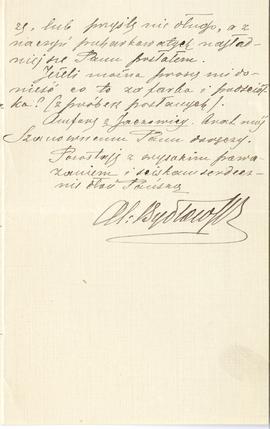 zę, lub przyślę nie długo, a z
naczyń puharkowatych najład
niejsze Panu posłałem.
Jeżeli można proszę mi do
nieść co to za farba i
ka? (z próbek posłanych).
Amforę z Jaczowicy. brat mój
Szanownemu Panu doręczy.
Pozostaję z wysokim powa
żaniem i ściskam serdecz
nie dłoń Pańską
Al: Bydłowski